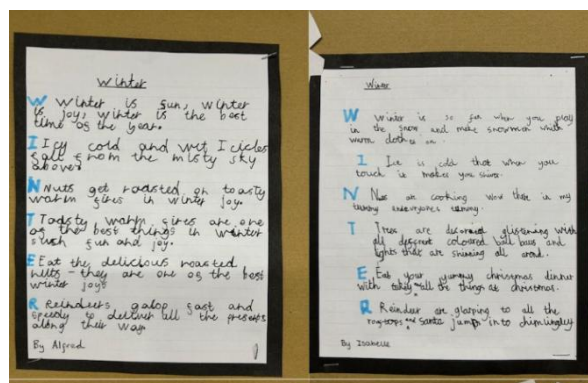 Winter
W Winter is fun, winter
is joy, winter is the best
time of the year.
I Icy cold and wet Icicles
fall from the misty sky
above.
N Nuts get roasted on toasty
warm fires in winter joy.
T Toasty warm fires are one
of the best things in winter
such fun and joy.
E Eat the delicious roasted
nuts - they are one of the best
winter joys
R Reindeers galop fast and
speedy to deliver all the presents
along their way.
By Alfred
Winter
W Winter is so fun when you play
in the snow and make snowmen with
warm clothes on.
I Ice is cold that when you
touch it makes you shiver.
N Nuts are cooking now there in my
tummy
T Trees are decorated glistening with
all coloured ball
lights that are shining all
E Eat your yummy christmas dinner
with all the things at christmas.
R Reindeer are to all the
rooftops and santa jumps into
By Isabelle